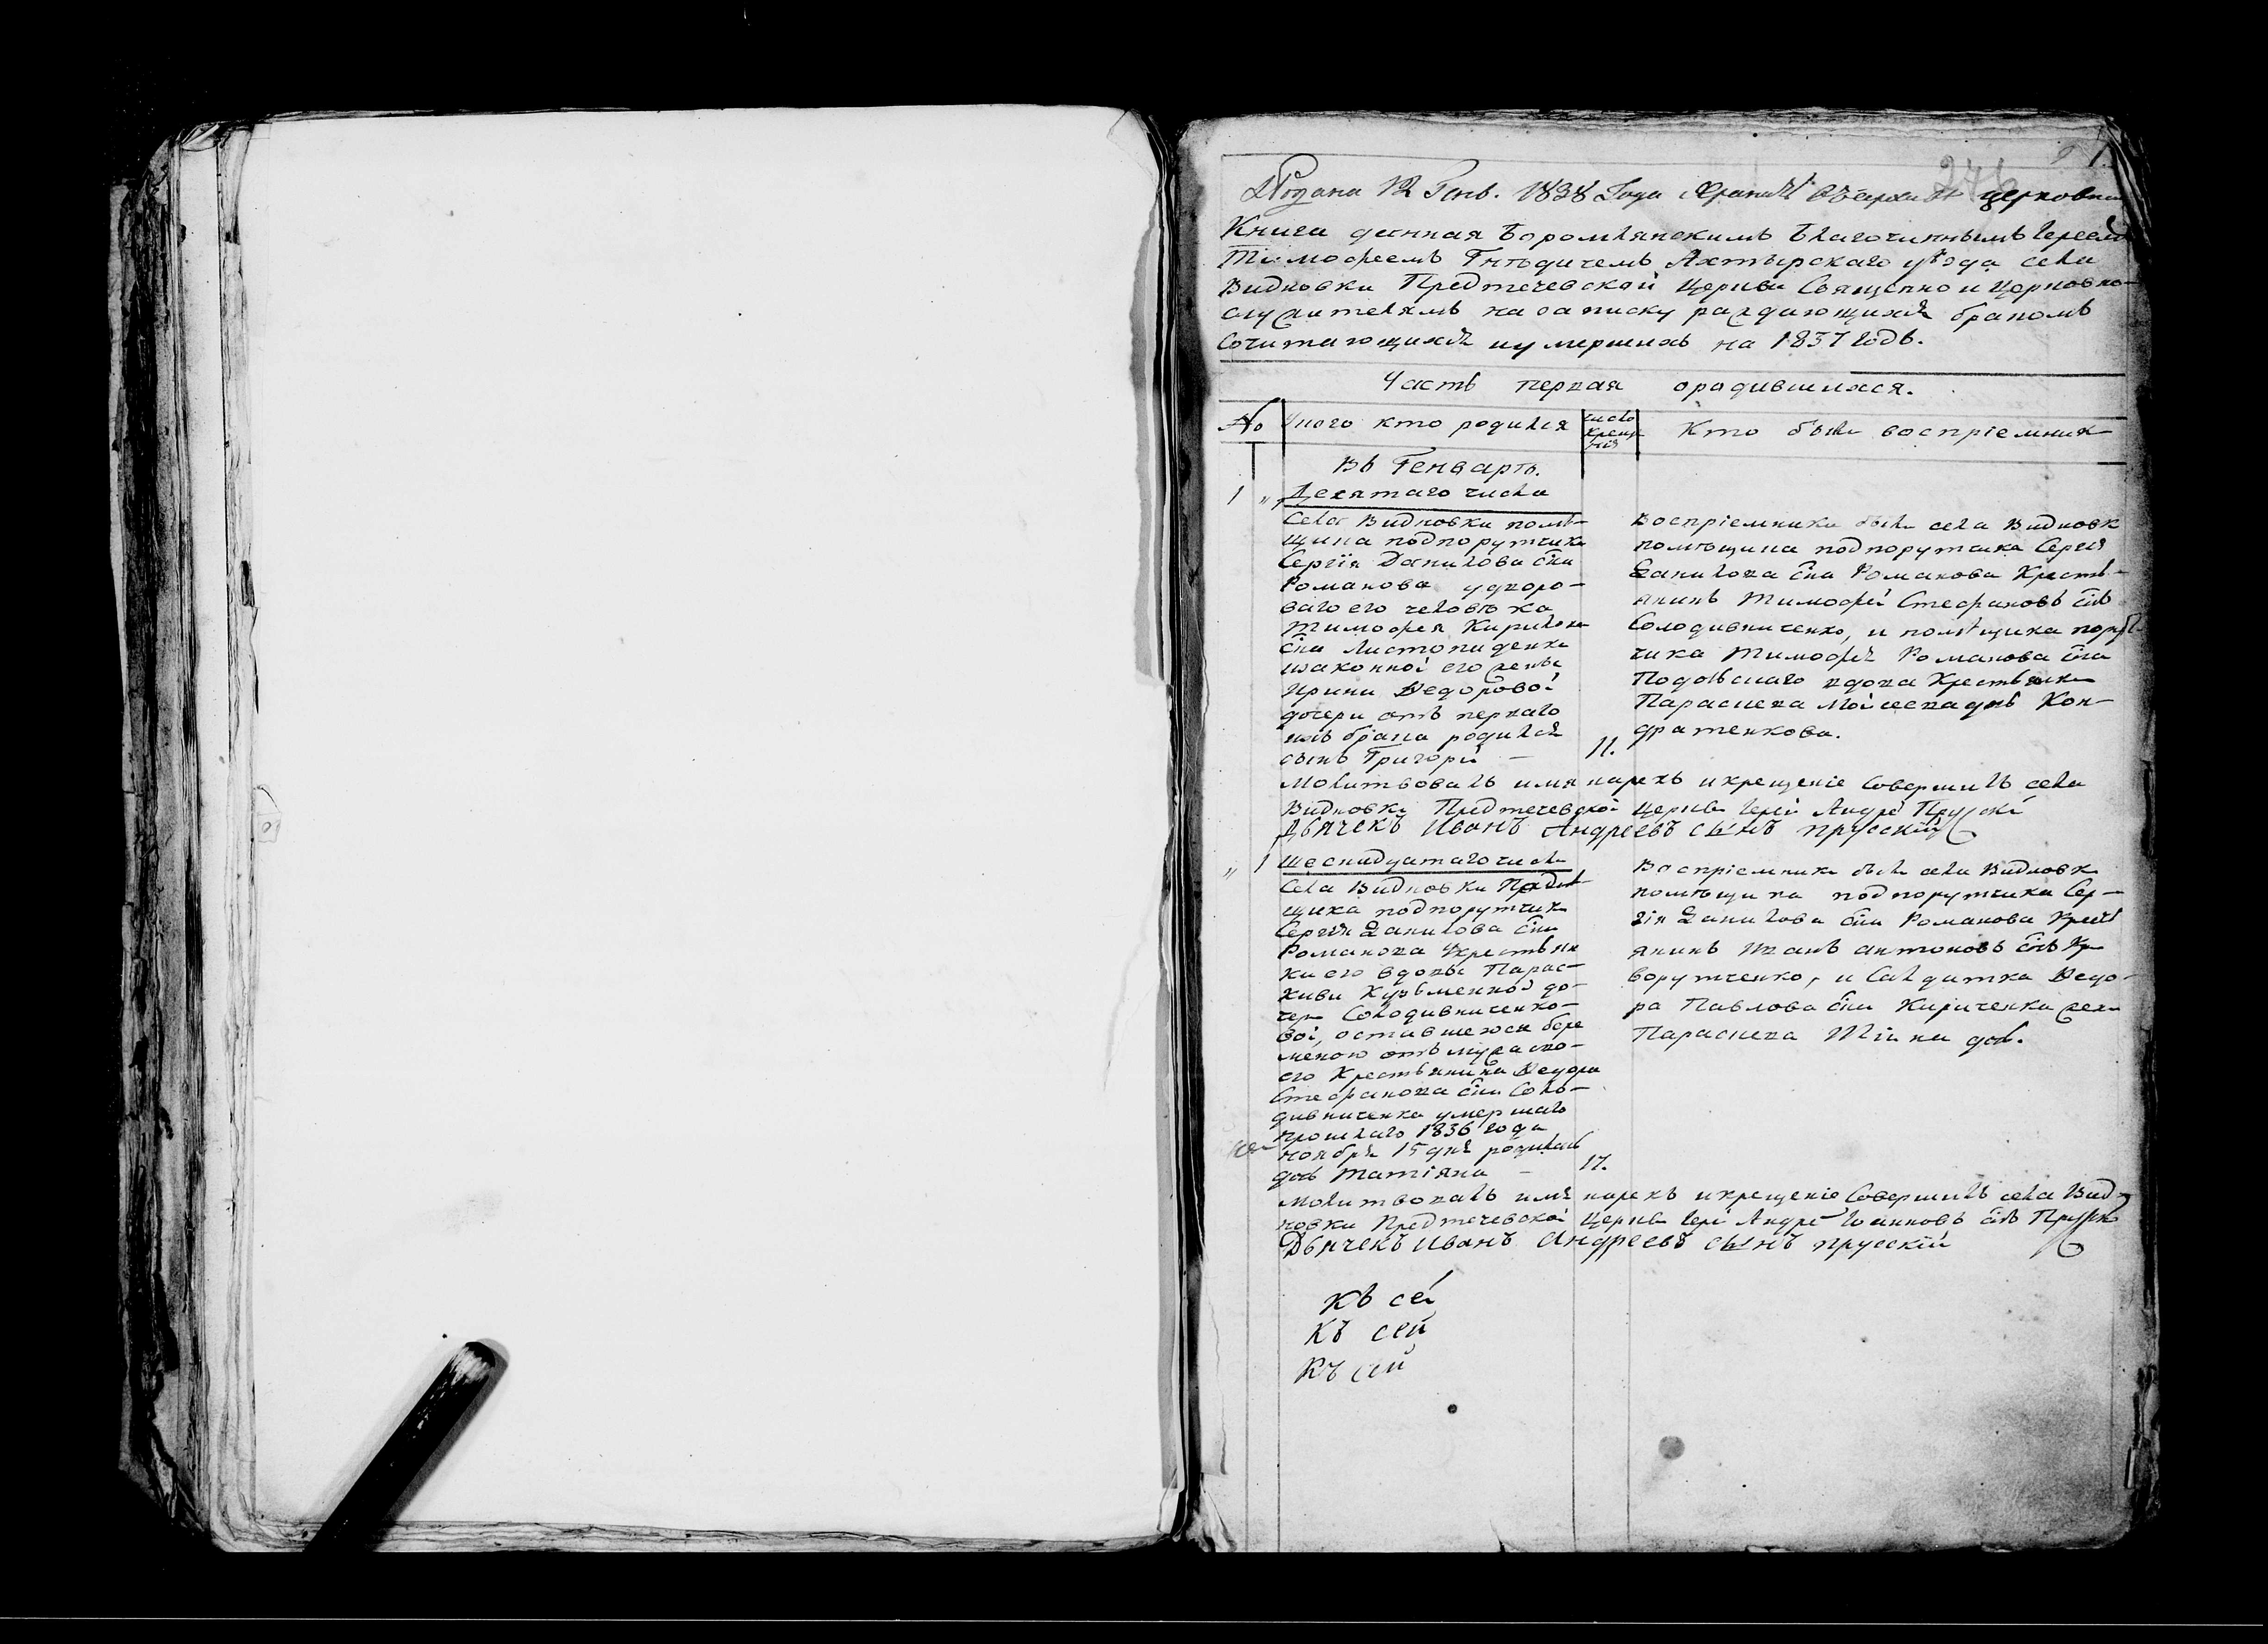 246
1
Подана 12 Генв. 1838 Года Хранить въ архиве церковном
Книга данная Боромлянскимъ Благочиннымъ Іереемъ
Тимофеемъ Гнѣдичемъ Ахтырскаго уѣзда села
Видновки Предтечевской Церкви Священно и Церковно-
служителямъ на записку раждающихся бракомъ
сочитающихся и умершихъ на 1837 годъ.
Часть первая о родившихся.
№ У кого кто родился число крещенія Кто были воспріемники
Въ Генварѣ.
1 " Десятаго числа
Села Видновки помѣ-
щика подпорутчика
Сергія Данилова сна
Романова у дворо-
ваго его человѣка
Тимофея Кирилова
сна Листопаденка
изаконной его жены
Ирины Федоровой
дочери отъ перваго
ихъ брака родился
сынъ Григорій — 11.
Воспріемники были села Видновки
помѣщика подпорутчика Сергія
Данилова сна Романова Кресть-
янинъ Тимофей Стефановъ снъ
Солодивниченко, и помѣщика порут-
чика Тимофея Романова сна
Подольскаго вдова Крестьянка
Параскева Мойсеева дчь Кон-
дратенкова.
Молитвовалъ имя нарекъ и крещеніе Совершилъ села
Видновки Предтечевской Церкви Іерей Андрей Прускій
Дьячекъ Иванъ Андреевъ сынъ прусскій
" 1 Шеснадцатаго числа
Села Видновки Помѣ-
щика подпорутчика
Сергія Данилова сна
Романова У крестьян
ки его вдовы Парас-
кивы Кузьменной до-
чери Солодивниченко-
вой, оставшейся бере
менною отъ мужа сво-
его Крестьянина Федора
Стефанова сна Соло-
дивниченка умершаго
прошлаго 1836 года
ноября 15 дня родилась
дчь Татіяна — 17.
Воспріемники были села Видновки
помѣщика подпорутчика Сер-
гія Данилова сна Романова Крест
янинъ Иванъ Антоновъ снъ Кри
ворутченко, и Салдатка Федо-
ра Павлова сна Кириченка жена
Параскева дчь.
Молитвовалъ имя нарекъ и крещеніе Совершилъ села Вид-
новки Предтечевской Церкви Іерей Андрей Іоанновъ снъ Прускій
Дьячекъ Иванъ Андреевъ сынъ прусскій
Къ сей
Къ сей
Къ сей